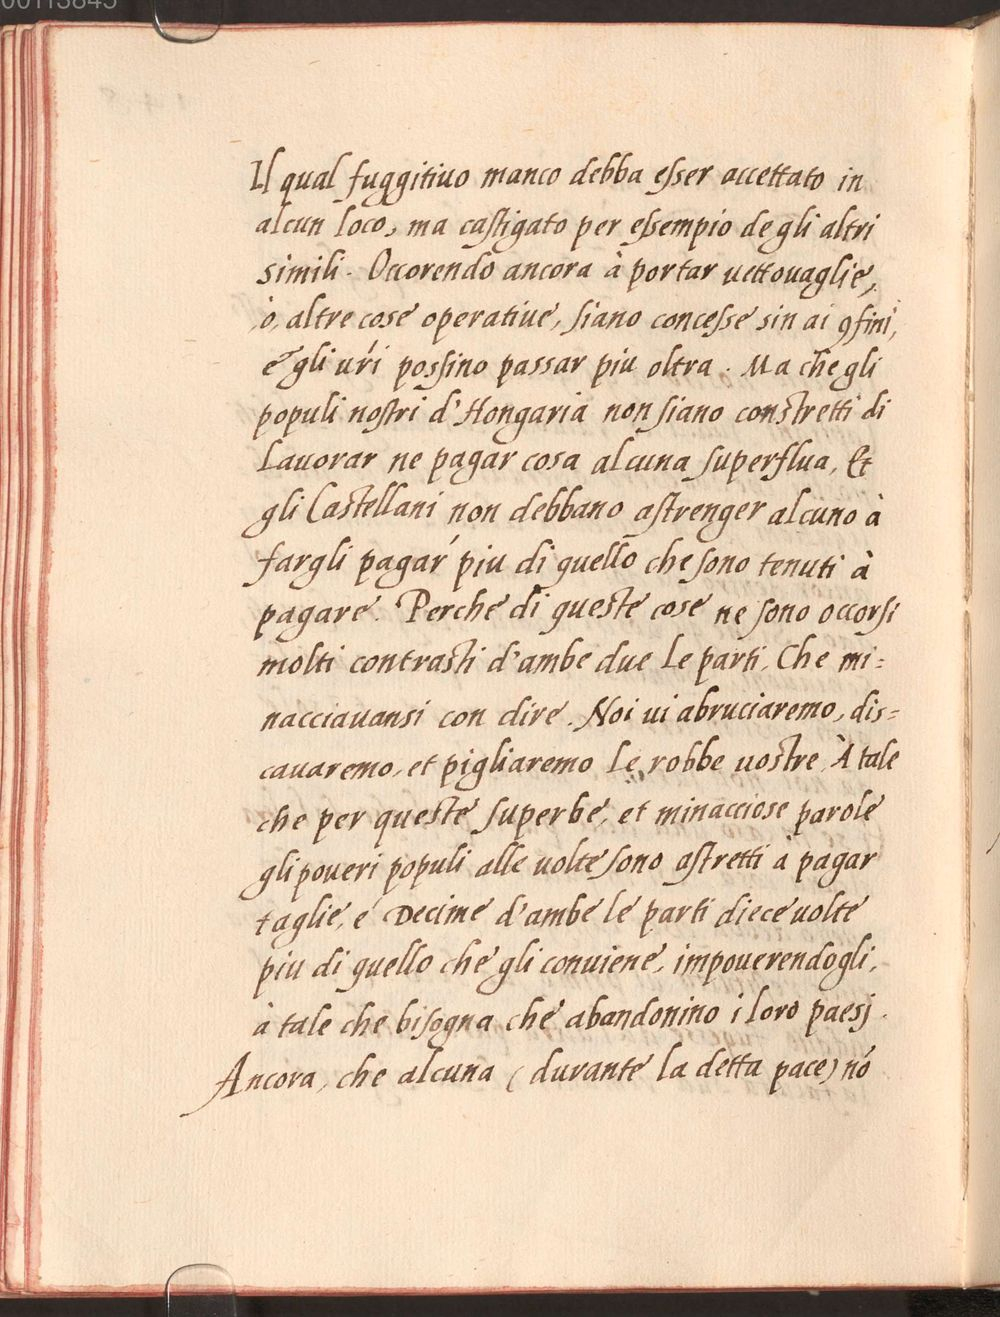 00113845
Il qual fuggitiuo manco debba eſser accettato in
alcun loco, ma caſtigato per eſsempio de gli altri
simili. Occorendo ancora à portar uettouaglie,
ò, altre cose operatiue, ſiano conceſse sin ai ꝯfini,
é gli uŕi poſſino passar piu oltra. Ma che gli
populi noſtri d'Hongaria non ſiano conſtretti di
Lauorar ne pagar cosa alcuna ſuperflua, Et
gli Caſtellani non debbano aſtrenger alcuno à
fargli pagar piu di quello che ſono tenuti à
pagare. Perche di queſte cose ne ſono occorſi
molti contraſti d'ambe due le parti, Che mi=
nacciauansi con dire. Noi ui abruciaremo, dis=
cauaremo, et pigliaremo le robbe uoſtre, À tale
che per queſte ſuperbe, et minacciose parole
gli poueri populi alle uolte ſono aſtretti à pagar
taglie, é Decime d'ambe le parti diece uolte
piu di quello che gli conuiene, impouerendogli,
à tale che biſogna che abandonino i loro paesj.
Ancora, che alcuna (durante la detta pace) nó